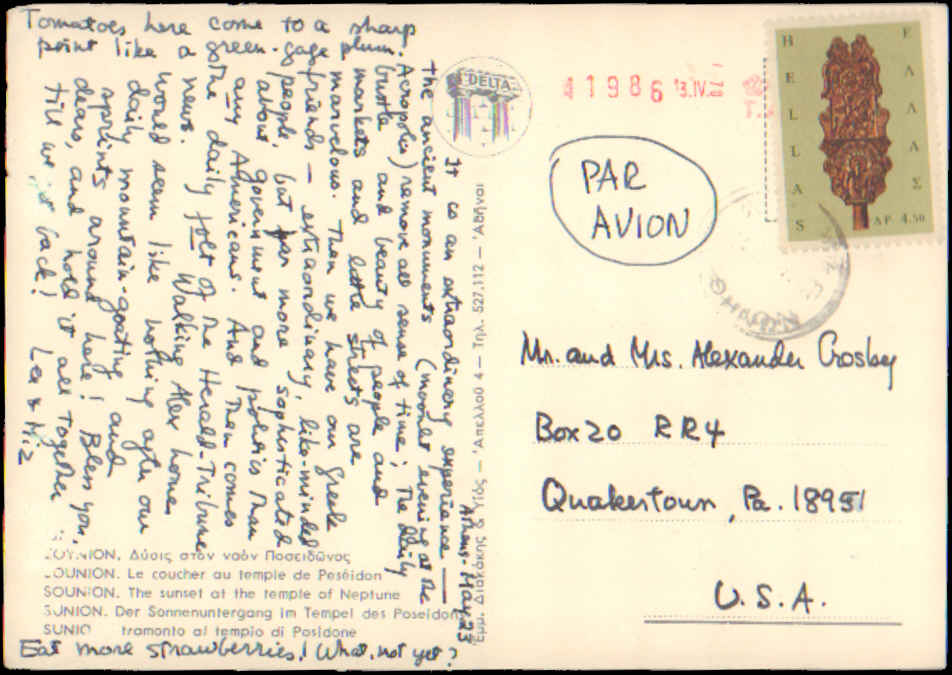 Athens - May 23
It is an extraordinary experience —
the ancient monuments (moonlit evening at the
Acropolis) remove all sense of time; the daily
bustle and beauty of people and
markets and little streets are
marvelous. Then we have our Greek
friends — extraordinary, like-minded
people, but far more sophisticated
about government and politics than
any Americans. And then comes
the daily jolt of the Herald-Tribune
news. Walking Alex home
would seem like nothing after our
daily mountain-goating and
sprints around here! Bless you,
dears, and hold it all together
till we get back! Lea &
Tomatoes here come to a sharp
point like a green-gage plum.
ΣΟΥΝΙΟΝ. Δύσις στὸν ναὸν Ποσειδῶνος
SOUNION. Le coucher au temple de Poséidon
SOUNION. The sunset at the temple of Neptune
SUNION. Der Sonnenuntergang im Tempel des Poseidon
SUNIO tramonto al tempio di Posidone
Eat more strawberries! What, not yet?
DELTA
Ἐμμ. Διακάκης & Υἱός — Ἀπελλοῦ 4 — Τηλ. 527.112 — Ἀθῆναι
41986 13.IV
HELLAS
ΕΛΛΑΣ
ΔΡ 4.50
PAR
AVION
Mr. and Mrs. Alexander Crosby
Box 20 RR4
Quakertown, Pa. 18951
U.S.A.